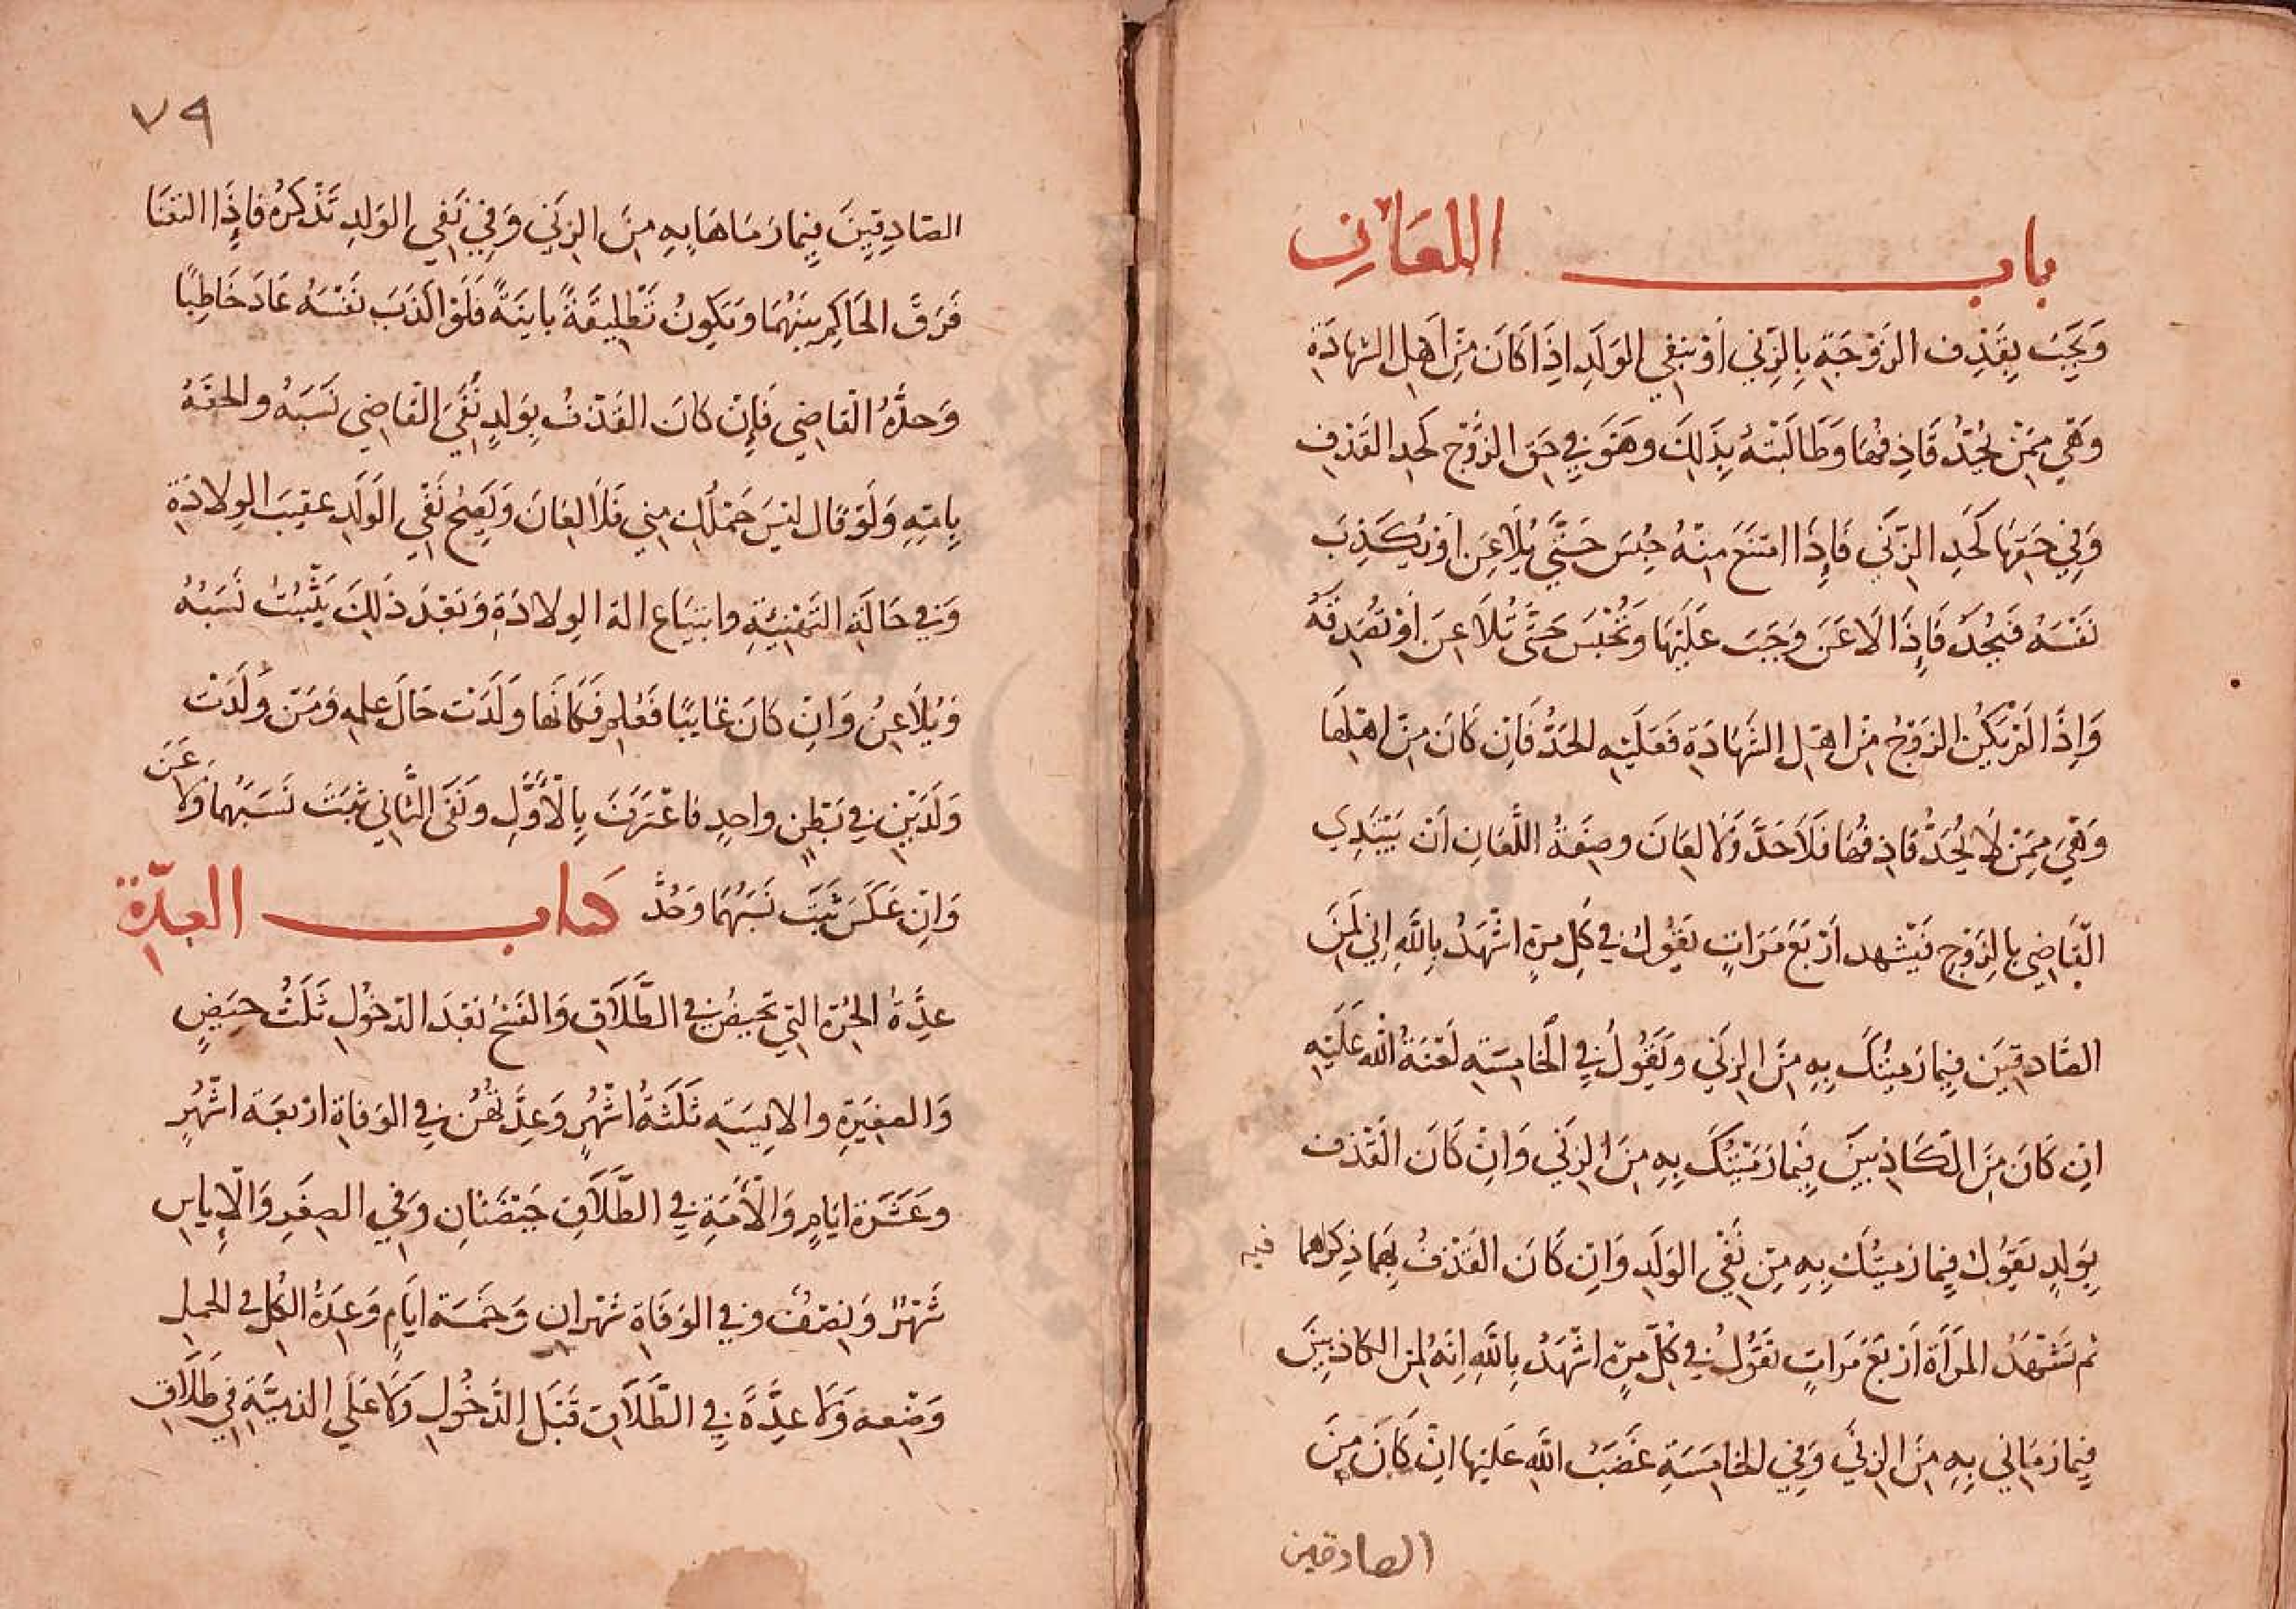 باب اللعان
وَيَجِبُ بِقَذفِ الزَوْجَةِ بِالزِنَي اَوْ بِنَفي الوَلَدِ اِذَا كَانَ مِنْ اَهلِ الشهَادَةِ
وَهِيَ مِمَنْ يُحَدُّ قَاذِفُهَا وَطَالَبَتْهُ بِذَلِكَ وهَوَ في حَقِ الزَوْجِ كَحدِ القَذفِ
وَفِي حَقِهَا كَحَدِ الزِنَي فَاِذَا امتَنَعَ مِنْهُ حُبِسَ حَتَّي يُلَاعِنَ اَوْ يُكَذِبَ
نَفسَهُ فَيُحَدَ فَاِذَا لَاعَنَ وَجَبَ عَلَيْهَا وَتُحْبَسَ حَتَّى تُلَاعِنَ اَوْ تُصَدِقَهُ
وَاِذَا لَمْ يَكُنِ الزَوْجُ مِنْ اهلِ الشَهَادَةِ فَعَلَيْهِ الحَدُّ فَاِن كَانَ مِنْ اهْلِهَا
وَهْيَ مِمَنْ لَا يُحَدُّ قَاذِفُهَا فَلَا حَدَّ وَلَا لِعَانَ وصِفَةُ اللَّعَانِ اَنْ يَبْتَدِي
القَاضِي بِالزَوْجِ فَيَشْهد اَرْبَعَ مَرَاتٍ يَقُولُ فِي كُلِ مَرةٍ اشْهَدُ بِاللهِ اِني لَمِنَ
الصَّادقِيَن فِيمَا رَمَيْتُكَ بِهِ مِنَ الزِنَي وَيَقُولُ فِي الخَامِسَةِ لَعْنَةُ الله عَلَيْهِ
اِن كَانَ مِنَ الْكَاذِبِيَن فِيمَا رَمَيْتُكَ بِهِ مِنَ الزِنَي وَاِنْ كَانَ القَذف
بِوَلدٍ يَقُولُ فِيمَا رَمَيْتُكَ بِهِ مِنْ نَفْي الوَلَدِ وَاِنْ كَانَ القَذفُ بِهِمَا ذِكَرهما فيه
ثم تَشهَدُ المَرْأَة اَرْبَعَ مَرَاتٍ تقُولُ في كُلِّ مرةٍ اشْهَدُ بِاللهِ اِنَهُ لمن الكاذِبِينَ
فِيمَا رَمَانِي بِهِ مِنَ الزِنَي وَفِي الخَامِسَةِ غَضَبُ اللَّهِ عَليهَا اِنْ كَانَ مِنَ
الصادقين
٧٩
الصَادِقِينَ فِيمَا رَمَاهَا بِهِ مِنَ الزِنَي وَفِي نَفي الوَلَدِ تَذْكُرهُ فَاِذَا التعَنَا
فَرَقَ الحَاكِم بينَهُمَا وَتَكُونُ تَطْلِيقَةً بايِنَةً فَلَوْ اكَذَبَ نَفْسَهُ عَادَ خَاطِبًا
وَحدَّهُ الْقَاضِي فَاِن كَانَ القَذفُ بِوَلدٍ نَفَيَ القَاضِي نَسَبَهُ والحقَهُ
بِامّهِ وَلَوْ قال ليْسَ حَمْلُكِ مِني فَلَا لِعَانَ وَيَصِحُ نَفْي الوَلَدِ عقِيبَ الوِلَادَةِ
وَفي حَالَةِ التَهْنِيَةِ وابتِيَاعِ الة الوِلَادَةِ وَبَعْدَ ذلِكَ يَثْبُتُ نَسَبُهُ
وَيُلَاعِنُ وَاِنْ كَانَ غَايبًا فَعُلِمَ فَكَانَها وَلَدَتْ حَالَ عِلمِهِ وَمَن وَلَدَتْ
وَلَدَيْنِ في بَطْنٍ واحِدٍ فاعْتَرَفَ بِالْأَوَّلِ ونَفَى الثَّاني ثبَتَ نَسَبَهُما وَلَاعَنَ
وَاِنْ عَكَسَ ثَبَتَ نَسَبَهُمَا وَحُدَّ كتاب العِدّة
عِدَّةُ الحُرّةِ التِي تَحيضُ في الطَّلَاقِ وَالفَسْخِ بَعْدَ الدخُولِ ثَلَثُ حِيَضٍ
وَالصغِيَرةِ والاِيسَةِ ثَلَثَةُ اشْهُرٍ وَعِدَّتُهُنَ فِي الوَفاةِ ارْبعَة اشْهُرٍ
وعَشَرَة ايَامٍ وَالْأَمَةِ فِي الطَّلَاقِ حَيْضَتَانِ وَفي الصِغَرِ وَالْاِيَاسِ
شَهْرٌ وَنِصْفٌ وَفي الوَفَاةِ شَهْرَانِ وَخمْسَة ايَامٍ وَعِدَةُ الكُلِ في الحَملِ
وَضْعه وَلَا عِدَّةَ فِي الطَّلَاقِ قَبْلَ الدُّخُولِ وَلَا عَلَى الذِميَّةِ فِي طَلَاقِ